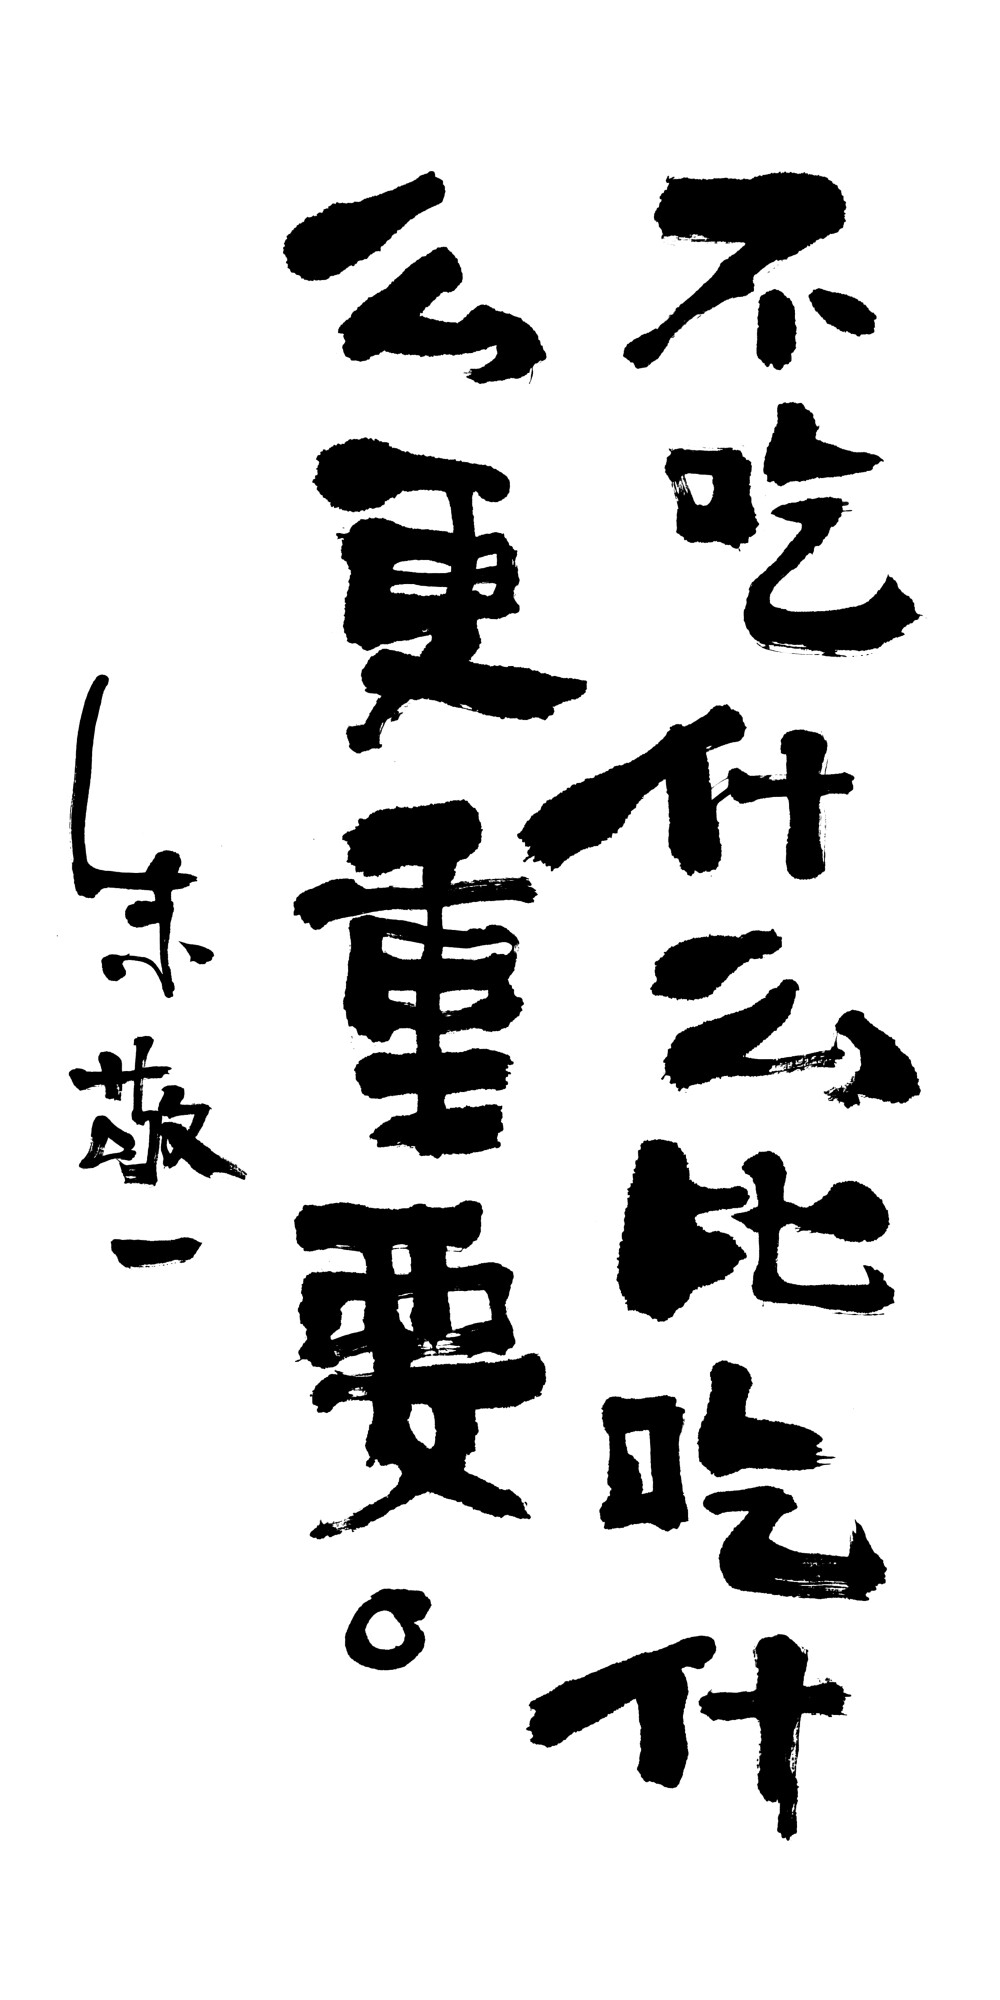 不吃什么比吃什
么更重要。
朱敬一